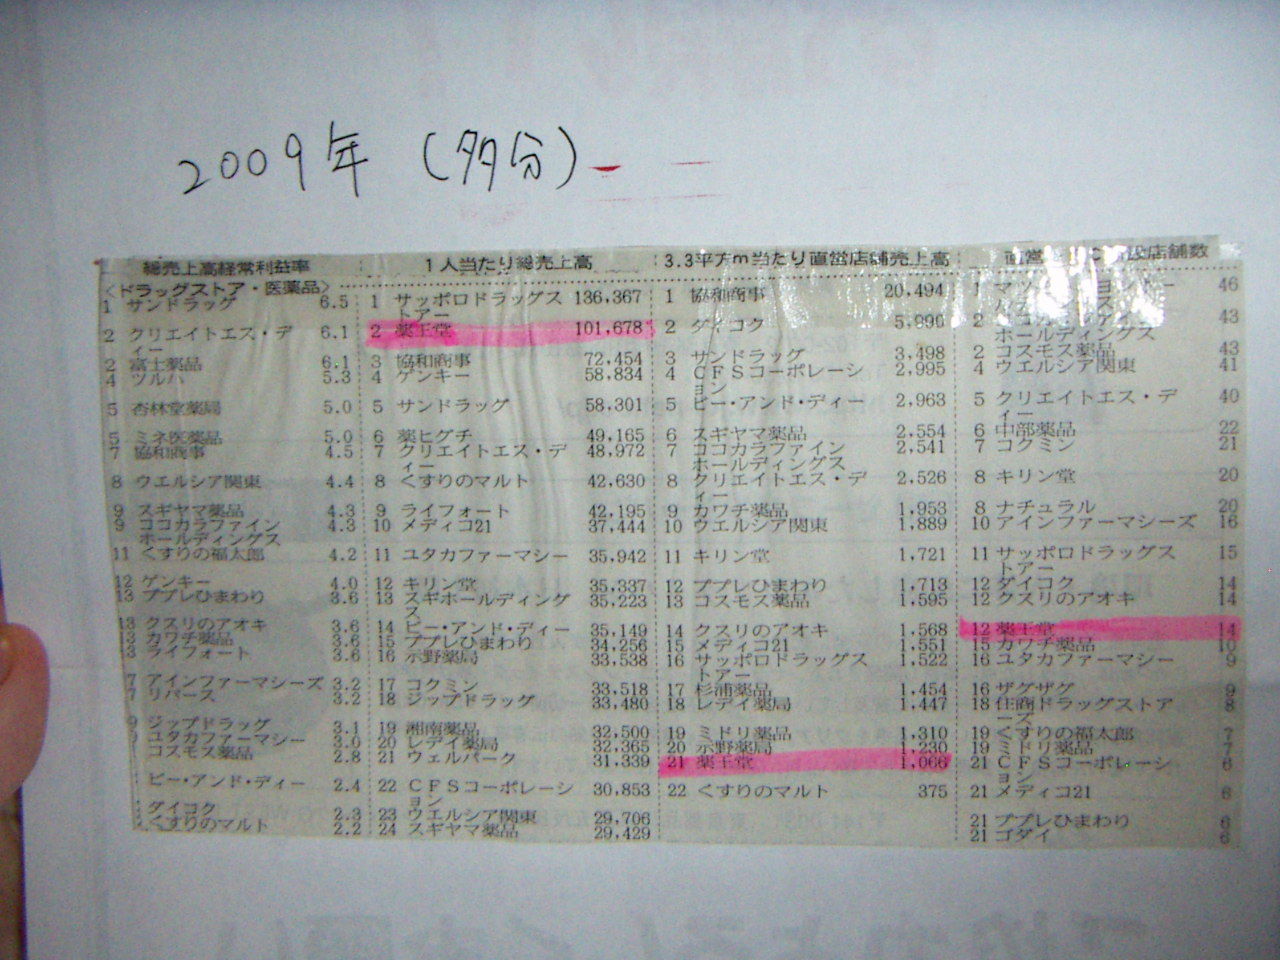 2009年(多分)
総売上高経常利益率
<ドラッグストア・医薬品>
1 サンドラッグ 6.5
2 クリエイトエス・ディー 6.1
2 富士薬品 6.1
4 ツルハ 5.3
5 杏林堂薬局 5.0
5 ミネ医薬品 5.0
7 協和商事 4.5
8 ウエルシア関東 4.4
9 スギヤマ薬品 4.3
9 ココカラファインホールディングス 4.3
11 くすりの福太郎 4.2
12 ゲンキー 4.0
13 ププレひまわり 3.6
13 クスリのアオキ 3.6
3 カワチ薬品 3.6
3 ライフォート 3.6
7 アインファーマシーズ 3.2
7 リバース 3.2
9 ジップドラッグ 3.1
ユタカファーマシー 3.0
コスモス薬品 2.8
ビー・アンド・ディー 2.4
ダイコク 2.3
くすりのマルト 2.2
1人当たり総売上高
1 サッポロドラッグストアー 136,367
2 薬王堂 101,678
3 協和商事 72,454
4 ゲンキー 58,834
5 サンドラッグ 58,301
6 薬ヒグチ 49,165
7 クリエイトエス・ディー 48,972
8 くすりのマルト 42,630
9 ライフォート 42,195
10 メディコ21 37,444
11 ユタカファーマシー 35,942
12 キリン堂 35,337
13 スギホールディングス 35,223
14 ビー・アンド・ディー 35,149
15 ププレひまわり 34,256
16 示野薬局 33,538
17 コクミン 33,518
18 ジップドラッグ 33,480
19 湘南薬品 32,500
20 レデイ薬局 32,365
21 ウェルパーク 31,339
22 CFSコーポレーション 30,853
23 ウエルシア関東 29,706
24 スギヤマ薬品 29,429
3.3平方m当たり直営店舗売上高
1 協和商事 20,494
2 ダイコク
3 サンドラッグ 3,498
4 CFSコーポレーション 2,995
5 ビー・アンド・ディー 2,963
6 スギヤマ薬品 2,554
7 ココカラファインホールディングス 2,541
8 クリエイトエス・ディー 2,526
9 カワチ薬品 1,953
10 ウエルシア関東 1,889
11 キリン堂 1,721
12 ププレひまわり 1,713
13 コスモス薬品 1,595
14 クスリのアオキ 1,568
15 メディコ21 1,551
16 サッポロドラッグストアー 1,522
17 杉浦薬品 1,454
18 レデイ薬局 1,447
19 ミドリ薬品 1,310
20 示野薬局 1,230
21 薬王堂 1,066
22 くすりのマルト 375
直営 設店舗数
46
2 ホールディングス 43
2 コスモス薬品 43
4 ウエルシア関東 41
5 クリエイトエス・ディー 40
6 中部薬品 22
7 コクミン 21
8 キリン堂 20
8 ナチュラル 20
10 アインファーマシーズ 16
11 サッポロドラッグストアー 15
12 ダイコク 14
12 クスリのアオキ 14
12 薬王堂 14
15 カワチ薬品 10
16 ユタカファーマシー 9
16 ザグザグ 9
18 住商ドラッグストアーズ 8
19 くすりの福太郎 7
19 ミドリ薬品 7
21 CFSコーポレーション 6
21 メディコ21 6
21 ププレひまわり 6
21 コダイ 6